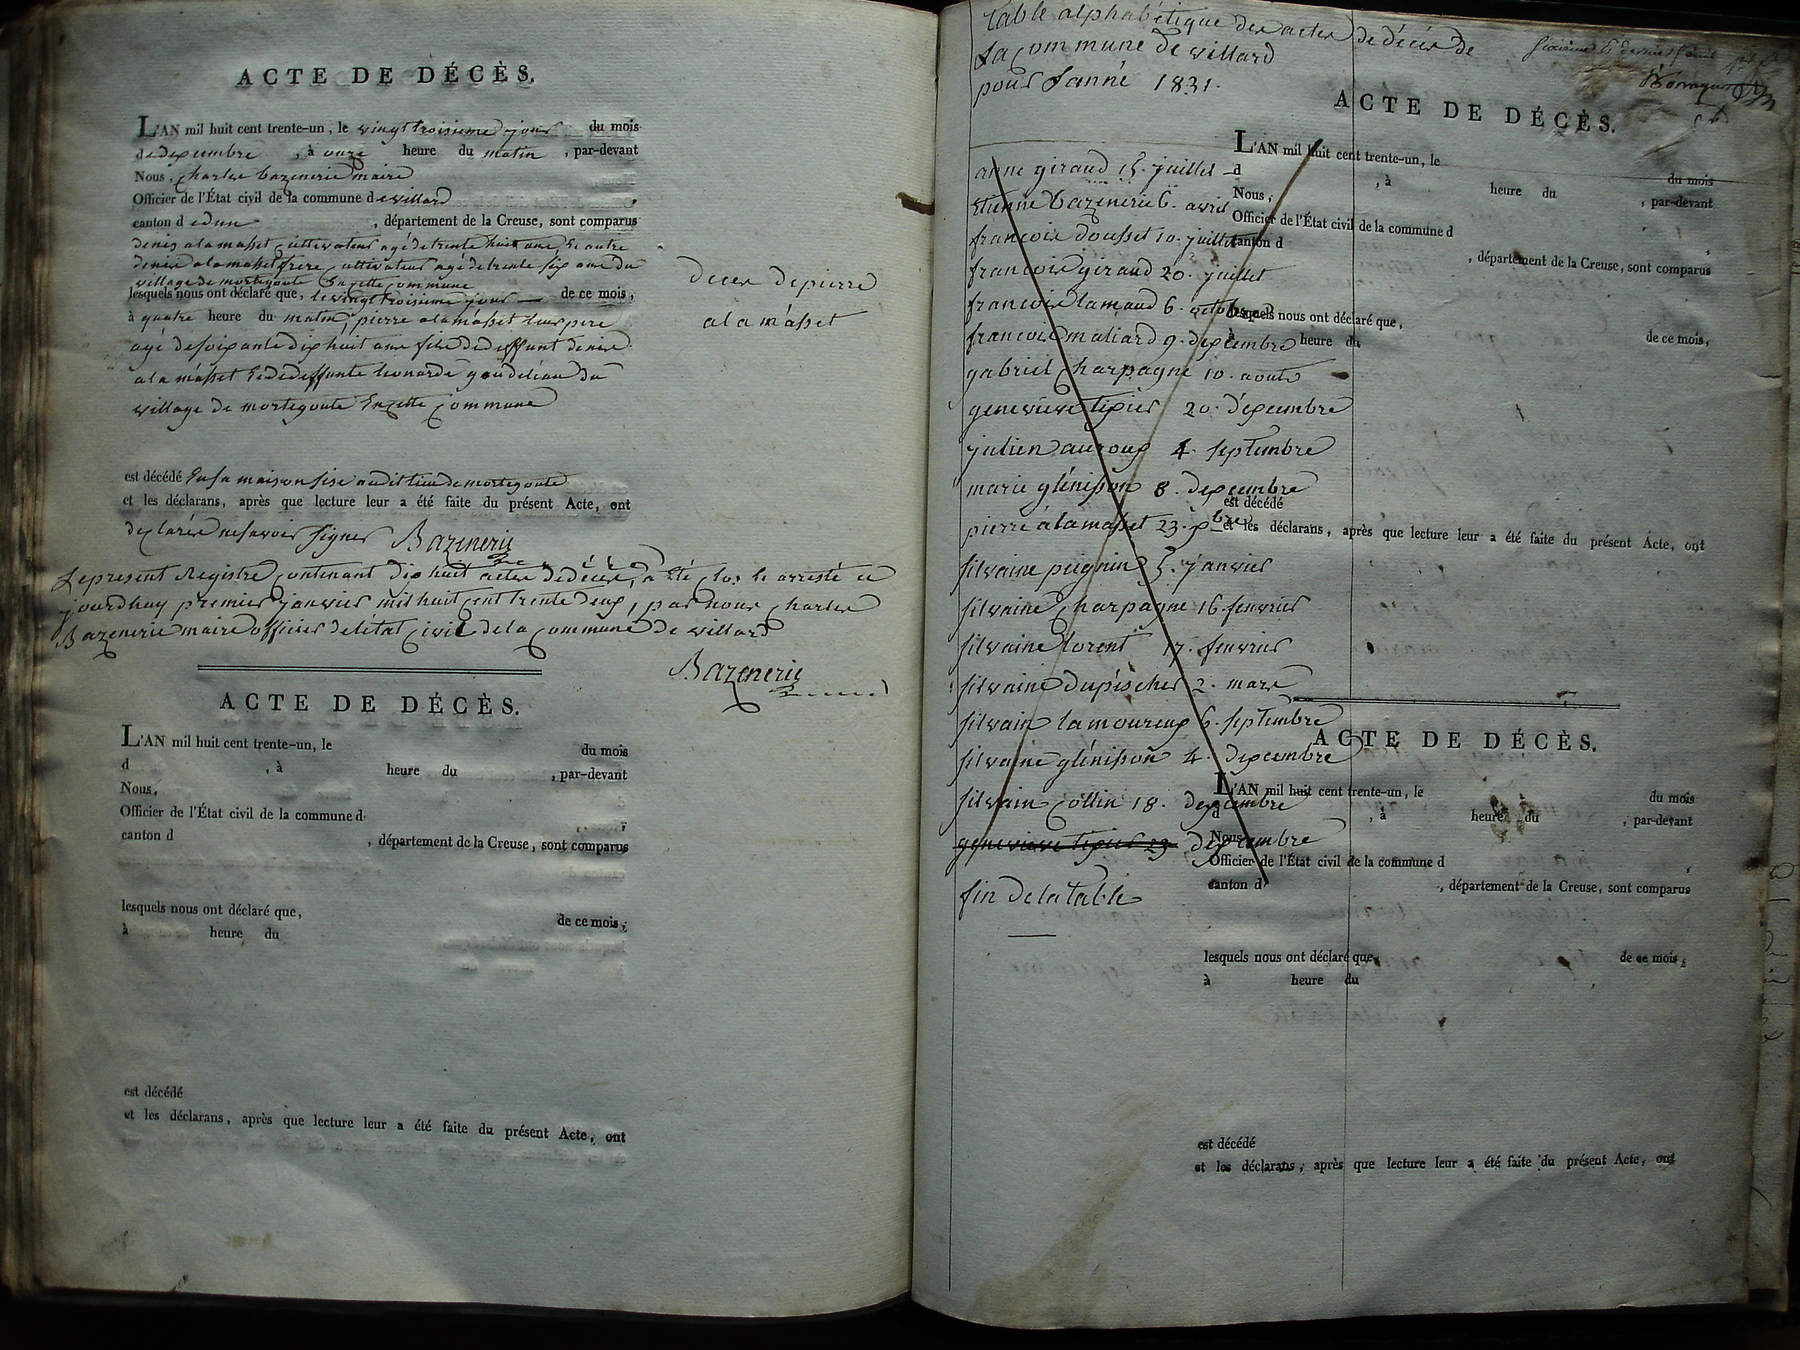 ACTE DE DÉCÈS.
L'AN mil huit cent trente-un, le vingt troisieme jour du mois
de dexcembre , à onze heure du matin , par-devant
Nous, charles bazenerie maire
Officier de l'État civil de la commune de villard
canton d edun , département de la Creuse, sont comparus
denis alamasset cultivateur agé de trente huit ans Et autre
denis alamasset frere cultivateur agé de trente six ans du
village de mortegoute En cette commune
lesquels nous ont déclaré que, le vingt troisieme jour de ce mois,
à quatre heure du matin, pierre alamasset leur pere
agé de soixante dix huit ans fils de deffunt denis
alamasset Et de deffunte leonarde goudeleau du
village de mortegoute En cette commune
est décédé En sa maison sise audit lieu de mortegoute
et les déclarans, après que lecture leur a été faite du présent Acte, ont
declarés ne savoir signer Bazenerie
Deces de pierre
alamasset
Le present Registre contenant dix huit actes de déces, a Eté clos Et arresté ce
jourdhuy premier janvier mil huit cent trente deux, par nous charles
Bazenerie maire officier de letat civil de la commune de villard
Bazenerie
ACTE DE DÉCÈS.
L'AN mil huit cent trente-un, le du mois
d , à heure du , par-devant
Nous,
Officier de l'État civil de la commune d
canton d , département de la Creuse, sont comparus
lesquels nous ont déclaré que, de ce mois,
à heure du
est décédé
et les déclarans, après que lecture leur a été faite du présent Acte, ont
table alphabétique des actes de décès de
La commune de villard
pour Lanné 1831.
Sixième Et dernier feuillet
anne giraud 15. juillet
Etienne bazenerie 6. avril
francois dousset 10. juillet
francois giraud 20. juillet
francois lamaud 6. octobre
francois maliard 9. dexcembre
gabriel charpagne 10. aoute
genevieve tixier 20. dexcembre
julien auroux 4. septembre
marie glénisson 8. dexcembre
pierre alamasset 23. xbre
silvaine peignin 5. janvier
silvaine charpagne 16. fevrier
silvaine lorent 17. fevrier
silvaine dupéscher 2. mars
silvain lamoureux 6. septembre
silvaine glénisson 4. dexcembre
silvain collin 18. dexcembre
genevieve tixier 23 dexcembre
fin de la table
ACTE DE DÉCÈS.
L'AN mil huit cent trente-un, le
d , à heure du du mois
Nous, , par-devant
Officier de l'État civil de la commune d
canton d , département de la Creuse, sont comparus
lesquels nous ont déclaré que,
à heure du de ce mois,
est décédé
et les déclarans, après que lecture leur a été faite du présent Acte, ont
ACTE DE DÉCÈS.
L'AN mil huit cent trente-un, le du mois
d , à heure du , par-devant
Nous,
Officier de l'État civil de la commune d
canton d , département de la Creuse, sont comparus
lesquels nous ont déclaré que, de ce mois,
à heure du
est décédé
et les déclarans, après que lecture leur a été faite du présent Acte, ont